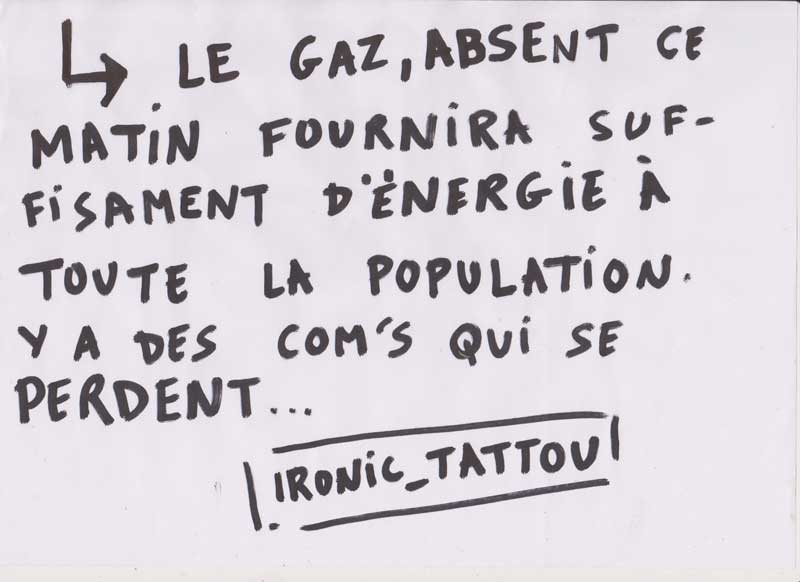 ↳ LE GAZ, ABSENT CE
MATIN FOURNIRA SUF-
FISAMENT D'ËNERGIE À
TOUTE LA POPULATION.
Y A DES COM'S QUI SE
PERDENT...
IRONIC_TATTOU